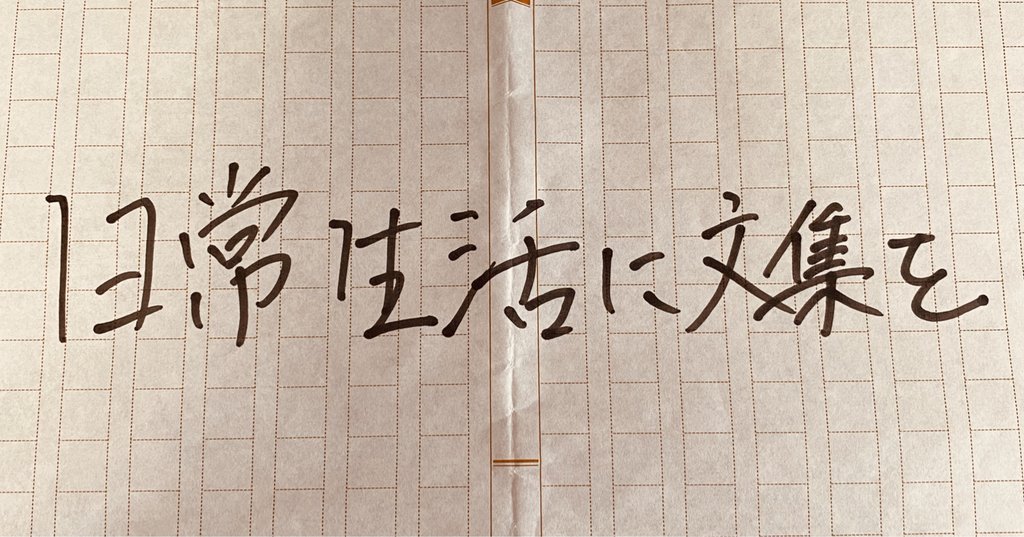 日常生活に文集を